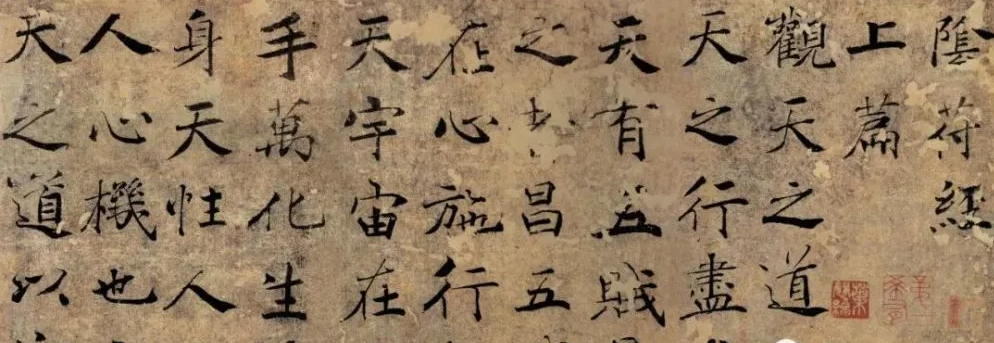 陰符經
上篇
觀天之道
天之行盡
天有五賊
之者昌五
在心施行
天宇宙在
手萬化生
身天性人
人心機也
天之道以